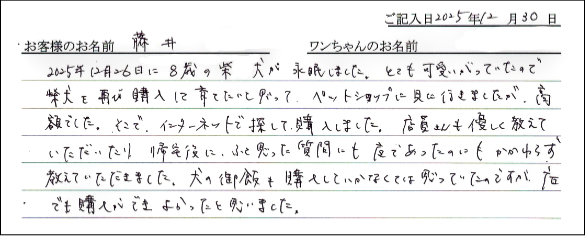 ご記入日2025年12月30日
お客様のお名前 藤井 ワンちゃんのお名前
2025年12月26日に8歳の柴犬が永眠しました。とても可愛いがっていたので
柴犬を再び購入して育てたいと思って、ペットショップに見に行きましたが、高
額でした。そこで、インターネットで探して購入しました。店員さんも優しく教えて
いただいたり 帰宅後に、ふと思った質問にも夜であったのにもかかわらず
教えていただきました。犬の御飯も購入していかなくてはと思っていたのですが、店
でも購入ができよかったと思いました。